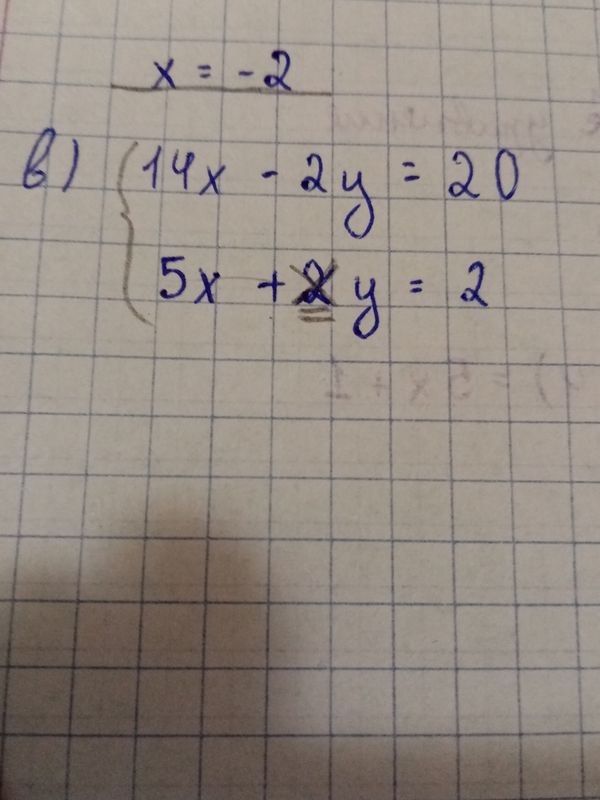 x = -2
в) 14x - 2y = 20
5x + 2y = 2